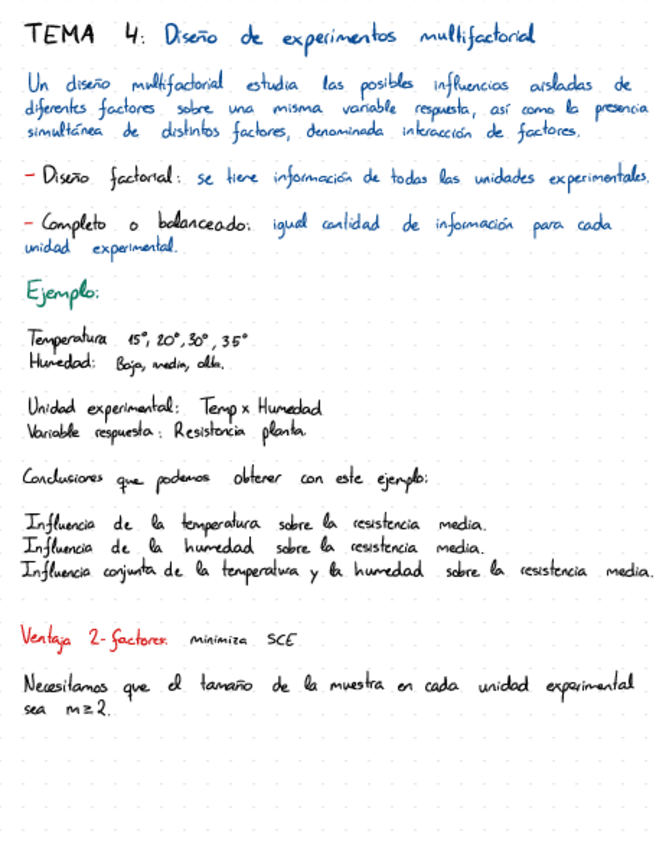 TEMA 4: Diseño de experimentos multifactorial
Un diseño multifactorial estudia las posibles influencias aisladas de
diferentes factores sobre una misma variable respuesta, así como la presencia
simultánea de distintos factores, denominada interacción de factores.
- Diseño factorial: se tiene información de todas las unidades experimentales.
- Completo o balanceado: igual cantidad de información para cada
unidad experimental.
Ejemplo:
Temperatura 15°, 20°, 30°, 35°
Humedad: Baja, media, alta.
Unidad experimental: Temp x Humedad
Variable respuesta: Resistencia planta
Conclusiones que podemos obtener con este ejemplo:
Influencia de la temperatura sobre la resistencia media.
Influencia de la humedad sobre la resistencia media.
Influencia conjunta de la temperatura y la humedad sobre la resistencia media.
Ventaja 2-factores: minimiza SCE
Necesitamos que el tamaño de la muestra en cada unidad experimental
sea m≥2.